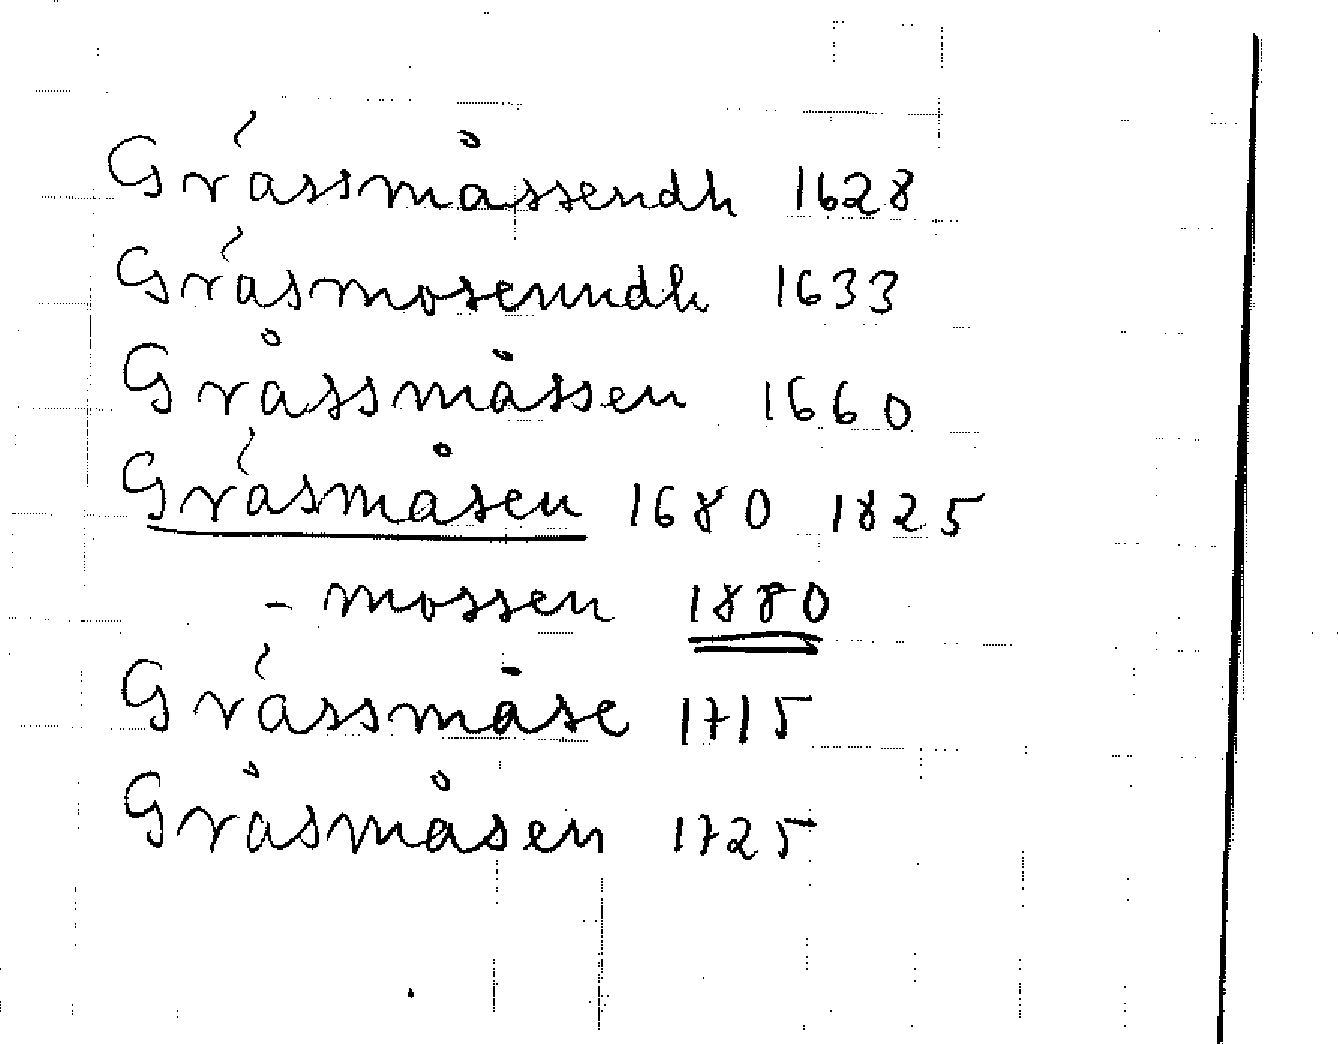 Grässmåssendh 1628
Gräsmosenndh 1633
Gråssmåssen 1660
Gräsmåsen 1680 1825
- mossen 1880
Grässmåse 1715
Gråsmåsen 1725